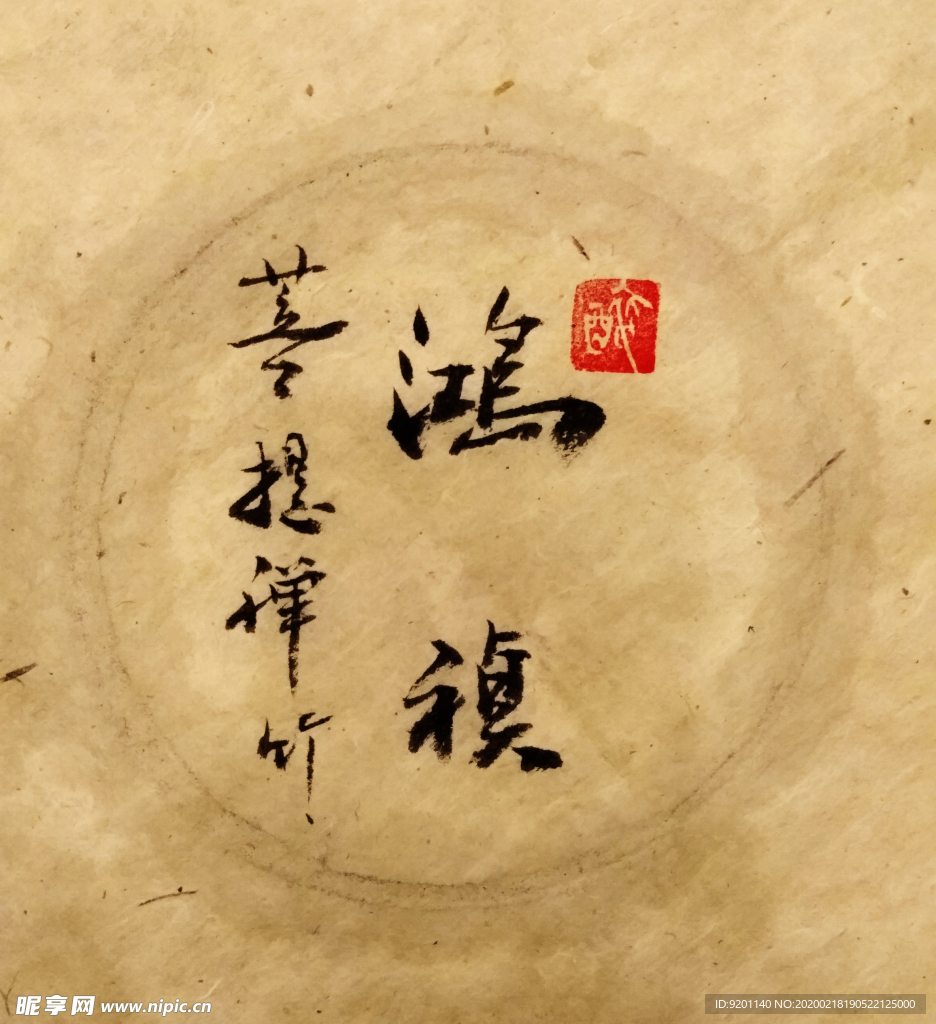 鸿禎
菩提禅竹
醉
昵享网 www.nipic.cn
ID:9201140 NO:20200218190522125000